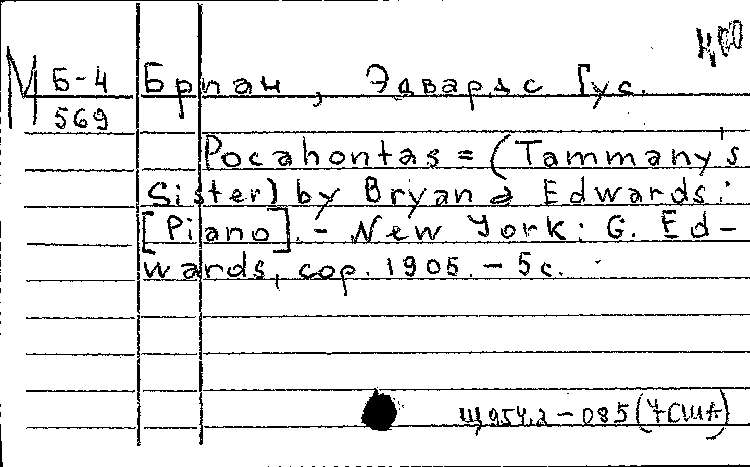 М Б-4 Бриан, Эдвардс Гус.
569
Pocahontas = (Tammany's
Sister) by Bryan a Edwards:
[Piano]. - New York: G. Ed-
wards, cop. 1905. - 5 с.
Щ954.2-085(7США)